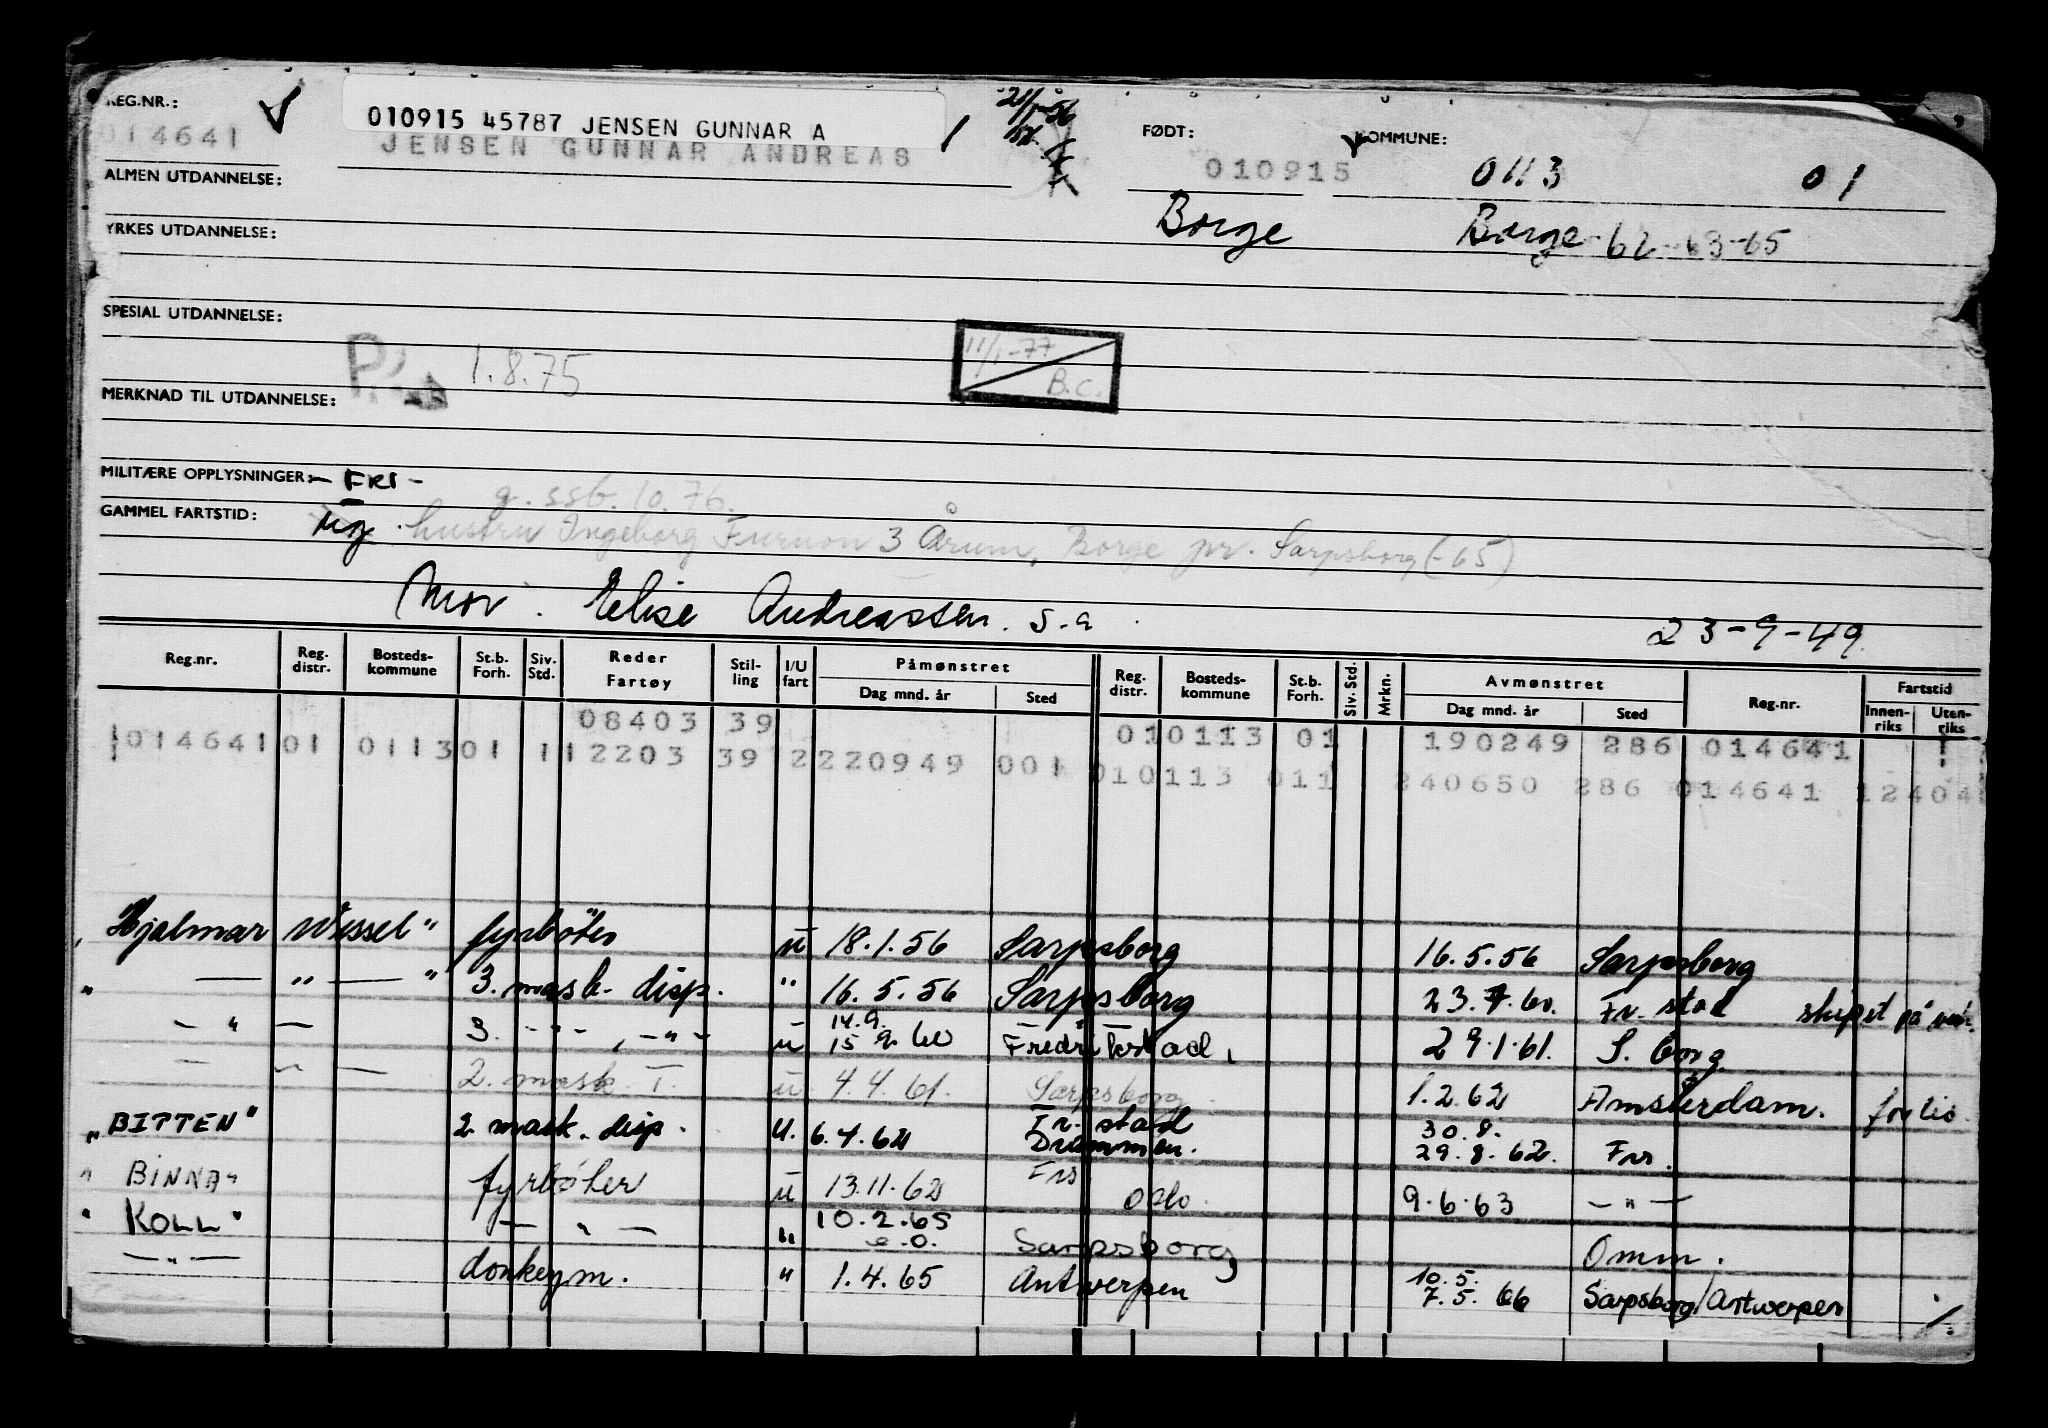 REG.NR.: 010915 45787 JENSEN GUNNAR A 1 FØDT: KOMMUNE:
014641 JENSEN GUNNAR ANDREAS 010915 0113 01
ALMEN UTDANNELSE:
Borge Borge-62-63-65
YRKES UTDANNELSE:
SPESIAL UTDANNELSE:
1.8.75 11/1-77 B.C.
MERKNAD TIL UTDANNELSE:
MILITÆRE OPPLYSNINGER: - FRI -
g. ssb. 10.76.
GAMMEL FARTSTID: hustru Ingeborg 3 Årum, Borge pr. Sarpsborg (-65)
Mor. Elise Andreassen. s.a. 23-9-49.
Reg.nr. Reg. distr. Bosteds-kommune St.b. Forh. Siv. Std. Reder Fartøy Stil-ling I/U fart Påmønstret Dag mnd. år Sted Reg. distr. Bosteds-kommune St.b. Forh. Siv. Std. Mrkn. Avmønstret Dag mnd. år Sted Reg.nr. Fartstid Innen-riks Uten-riks
08403 39 010113 01 190249 286 014641
1014641 01 0113 01 1 112203 39 2 220949 001 010113 011 240650 286 014641 12404
"Hjalmar Wessel" fyrbøter u 18.1.56 Sarpsborg 16.5.56 Sarpsborg
" — " — " 3. mask. disp. " 16.5.56 Sarpsborg 23.7.60. Fr.stad skipet på
— " — 3. -"- -"- u 14.9. 15.9.60 Fredrikstad, 29.1.61. S.borg
— " — 2. mask. T. u 4.4.61. Sarpsborg 1.2.62 Amsterdam. forlis.
"BITTEN" 2 mask. disp. u. 6.4.62 Fr.stad Drammen. 30.8. 29.8.62. Frs.
" BINNA" fyrbøter u 13.11.62 Frs Oslo. 9.6.63 — " —
" KOLL" — " — " 10.2.65 e.o. Sarpsborg Omm.
— " — donkeym. " 1.4.65 Antwerpen 10.5. 7.5.66 Sarpsborg/Antwerpen